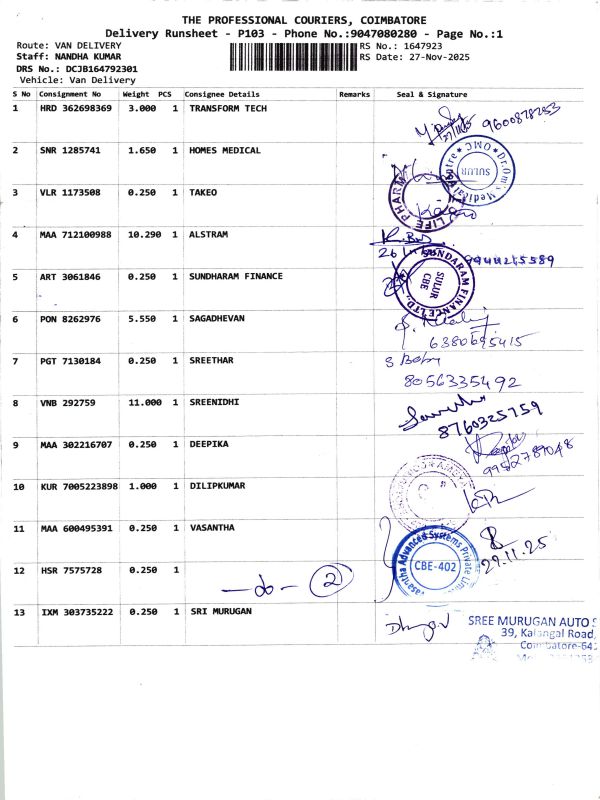 THE PROFESSIONAL COURIERS, COIMBATORE
Delivery Runsheet - P103 - Phone No.:9047080280 - Page No.:1
Route: VAN DELIVERY
RS No.: 1647923
Staff: NANDHA KUMAR
RS Date: 27-Nov-2025
DRS No.: DCJB164792301
Vehicle: Van Delivery
S No Consignment No Weight PCS Consignee Details Remarks Seal & Signature
1 HRD 362698369 3.000 1 TRANSFORM TECH
27/11/25 9600878253
2 SNR 1285741 1.650 1 HOMES MEDICAL
Dr.Om's Medical Centre * OMC * SULUR
3 VLR 1173508 0.250 1 TAKEO
LIFE PHARM
4 MAA 712100988 10.290 1 ALSTRAM
9944245589
5 ART 3061846 0.250 1 SUNDHARAM FINANCE
SUNDARAM FINANCE LTD. SULUR CBE
6 PON 8262976 5.550 1 SAGADHEVAN
6380695415
7 PGT 7130184 0.250 1 SREETHAR
S Baby
8056335492
8 VNB 292759 11.000 1 SREENIDHI
8760325759
9 MAA 302216707 0.250 1 DEEPIKA
9952789048
10 KUR 7005223898 1.000 1 DILIPKUMAR
11 MAA 600495391 0.250 1 VASANTHA
Vasantha Advanced Systems Private Lim
CBE-402
29.11.25
12 HSR 7575728 0.250 1
-do- 2
13 IXM 303735222 0.250 1 SRI MURUGAN
SREE MURUGAN AUTO S
39, Kalangal Road,
Coimbatore-641